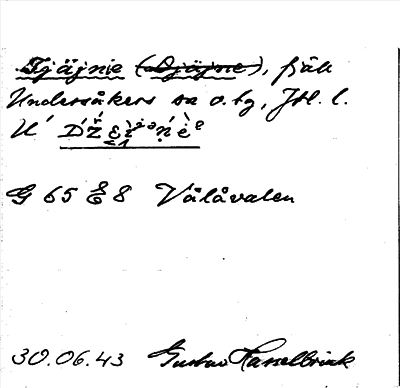 Tjäjnie (Djäjne), fjäll
Undersåkers sn o. tg, Jtl. l.
G 65 8 Vålåvalen
30.06.43 Gustav Hasselbrink